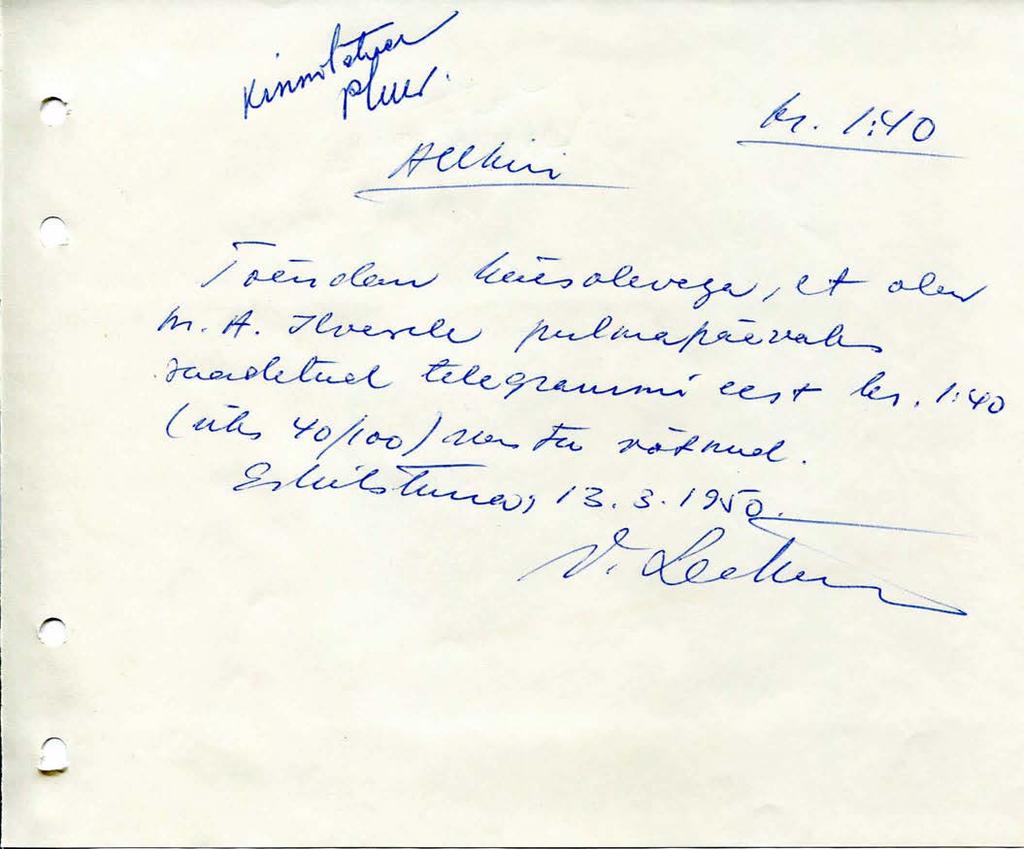 Kinnitatud
kr. 1:40
Allkiri
Tõendan käesolevaga, et olen
hr. A. Ilvesele pulmapäevaks
saadetud telegrammi eest kr. 1:40
(üks 40/100) vastu võtnud.
Eskilstuna, 13.3.1950.
V.